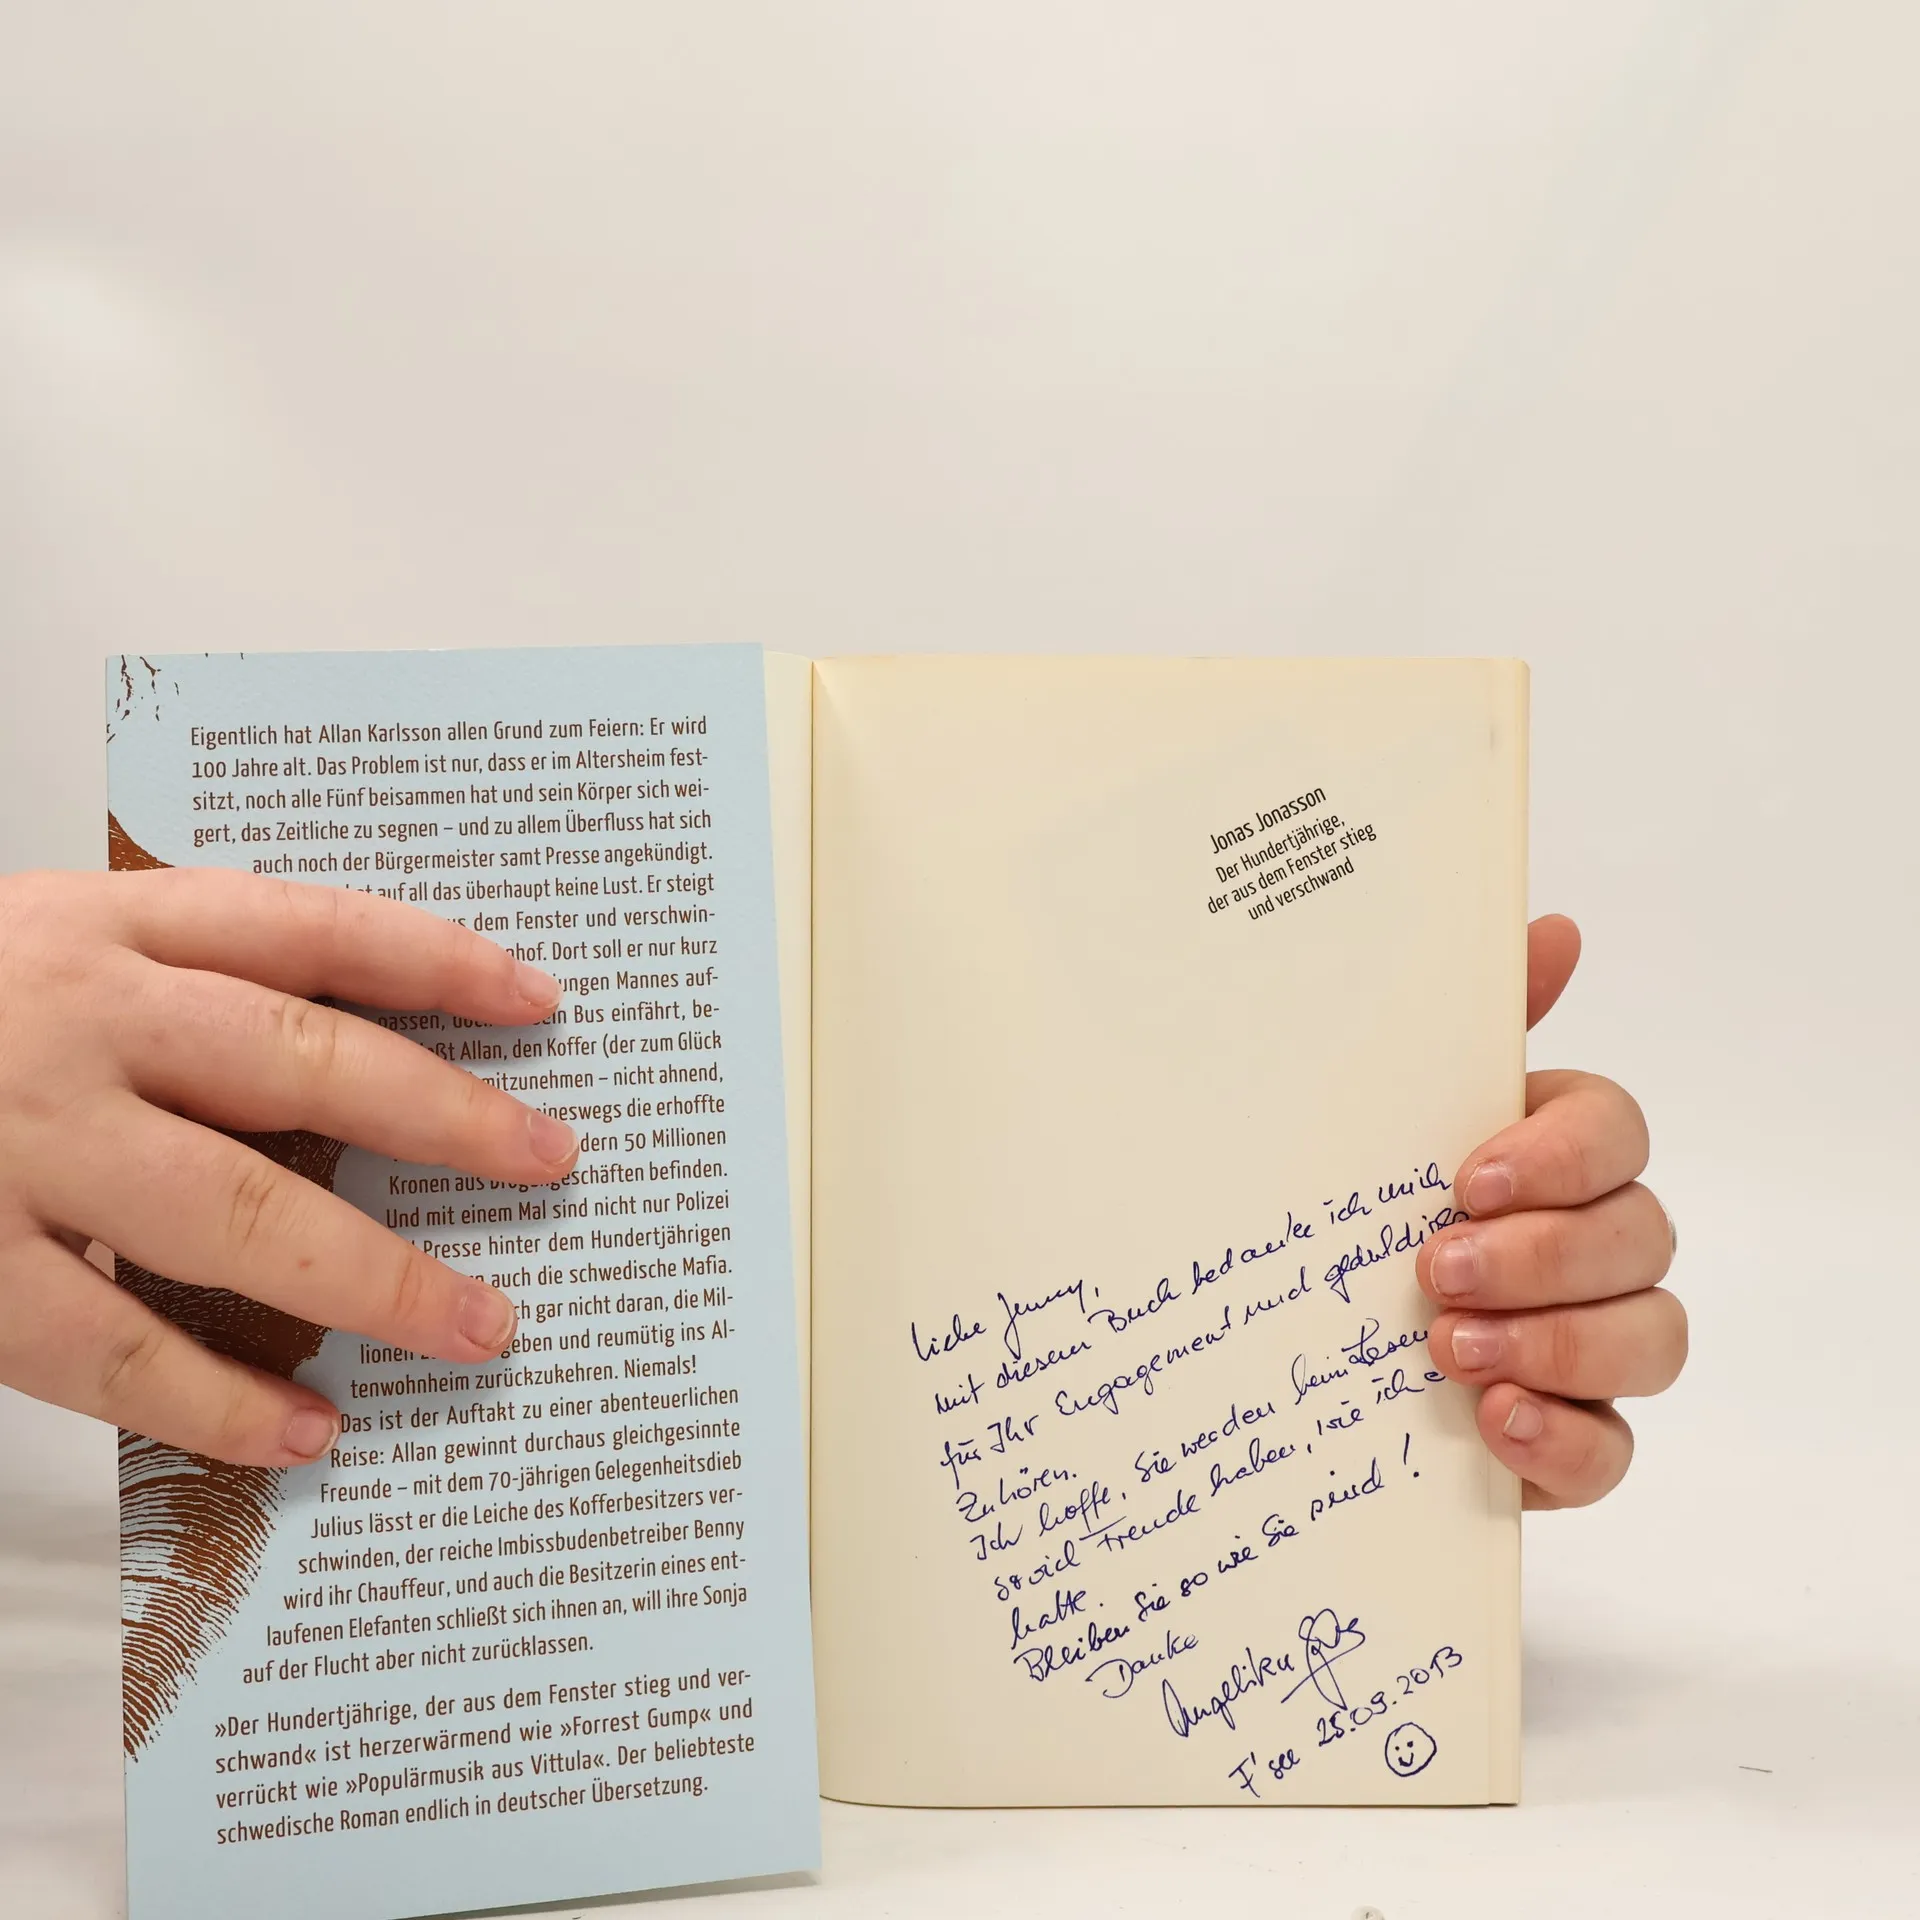 Eigentlich hat Allan Karlsson allen Grund zum Feiern: Er wird
100 Jahre alt. Das Problem ist nur, dass er im Altersheim fest-
sitzt, noch alle Fünf beisammen hat und sein Körper sich wei-
gert, das Zeitliche zu segnen – und zu allem Überfluss hat sich
auch noch der Bürgermeister samt Presse angekündigt.
auf all das überhaupt keine Lust. Er steigt
dem Fenster und verschwin-
Dort soll er nur kurz
Mannes auf-
passen, Bus einfährt, be-
Allan, den Koffer (der zum Glück
mitzunehmen – nicht ahnend,
die erhoffte
50 Millionen
Kronen aus befinden.
Und mit einem Mal sind nicht nur Polizei
Presse hinter dem Hundertjährigen
auch die schwedische Mafia.
gar nicht daran, die Mil-
lionen und reumütig ins Al-
tenwohnheim zurückzukehren. Niemals!
Das ist der Auftakt zu einer abenteuerlichen
Reise: Allan gewinnt durchaus gleichgesinnte
Freunde – mit dem 70-jährigen Gelegenheitsdieb
Julius lässt er die Leiche des Kofferbesitzers ver-
schwinden, der reiche Imbissbudenbetreiber Benny
wird ihr Chauffeur, und auch die Besitzerin eines ent-
laufenen Elefanten schließt sich ihnen an, will ihre Sonja
auf der Flucht aber nicht zurücklassen.
»Der Hundertjährige, der aus dem Fenster stieg und ver-
schwand« ist herzerwärmend wie »Forrest Gump« und
verrückt wie »Populärmusik aus Vittula«. Der beliebteste
schwedische Roman endlich in deutscher Übersetzung.
Jonas Jonasson
Der Hundertjährige,
der aus dem Fenster stieg
und verschwand
Liebe Jenny,
mit diesem Buch bedanke ich mich
für Ihr Engagement und geduldiges
Zuhören.
Ich hoffe, Sie werden beim Lesen
soviel Freude haben, wie ich
hatte.
Bleiben Sie so wie Sie sind!
Danke
Angelika
F'see 25.09.2013